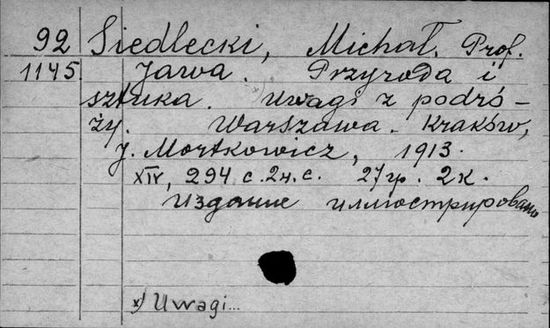 92 Siedlecki, Michał. Prof.
1145. Jawa. Przyroda i
sztuka. x) Uwagi z podró-
ży. Warszawa. Kraków,
J. Mortkowicz, 1913.
XIV, 294 с. 2н. с. 27 гр. 2 к.
Издание иллюстрировано
x) Uwagi...